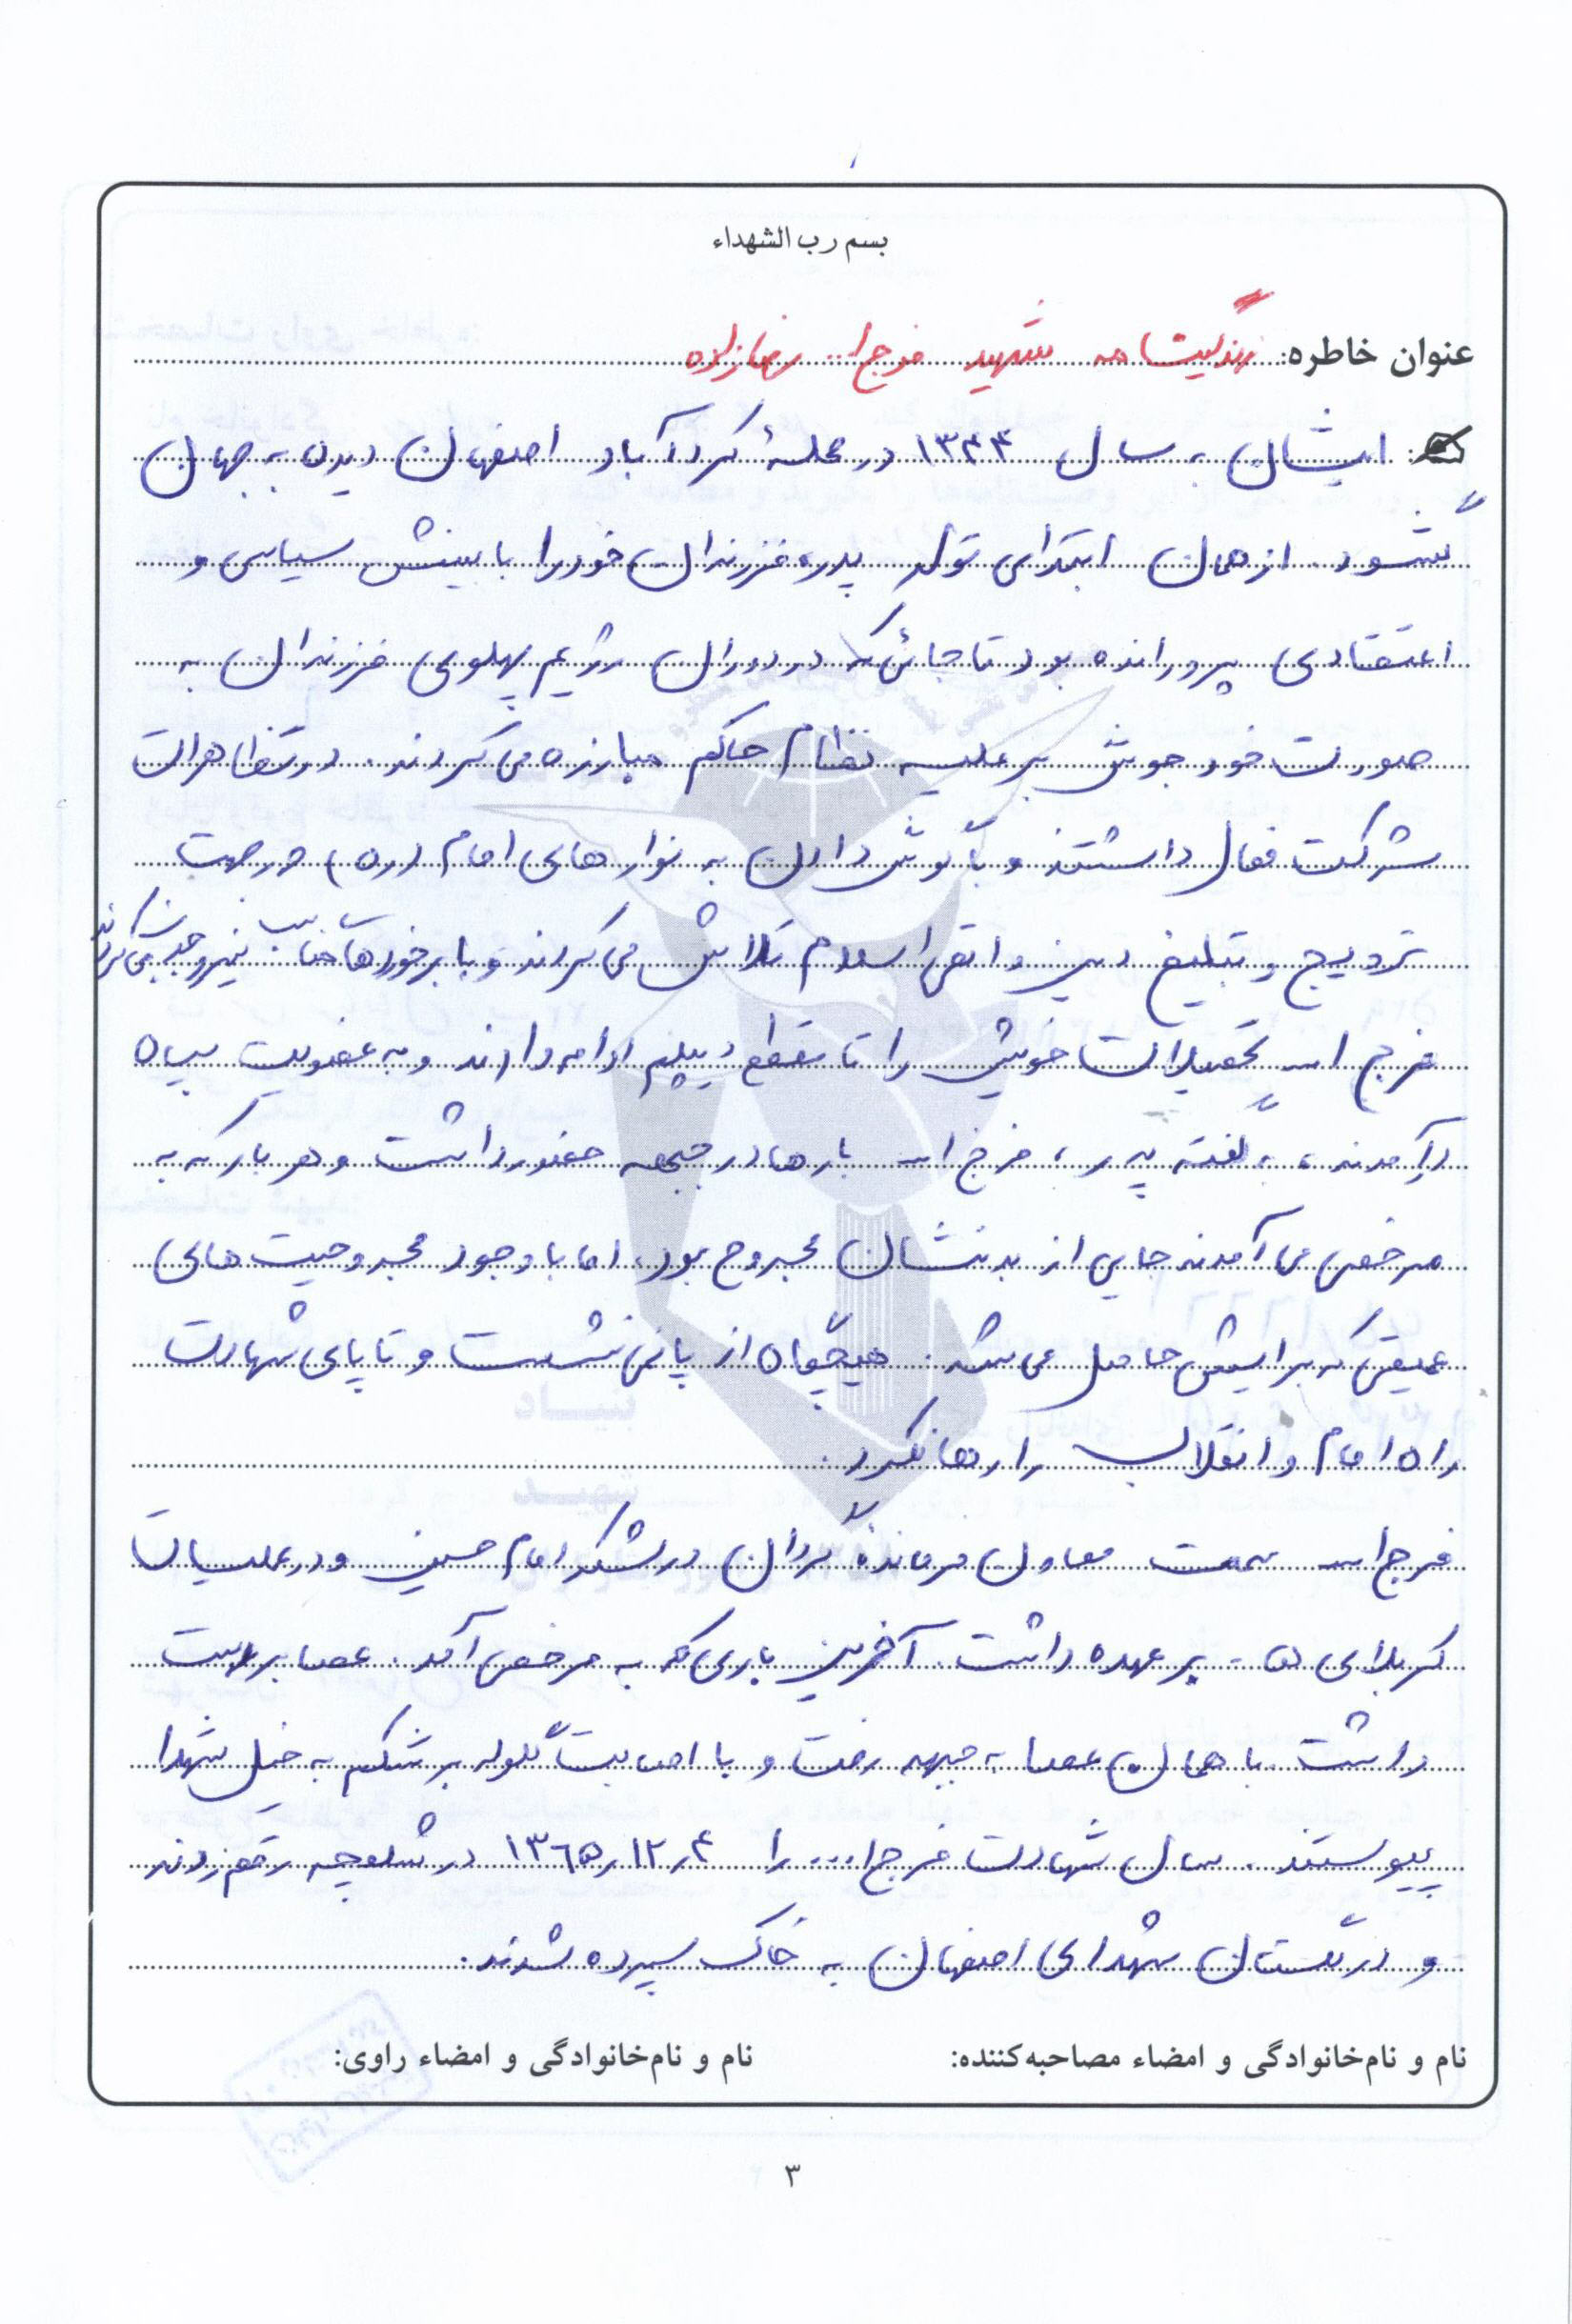 بسم رب الشهداء
عنوان خاطره: زندگینامه شهید فرج ا... رضازاده
ایشان به سال ۱۳۴۴ در محلهٔ کردآباد اصفهان دیده به جهان
گشود. از همان ابتدای تولد پدر، فرزندان خود را با بینش سیاسی و
اعتقادی پرورانده بود تا جائی که در دوران رژیم پهلوی فرزندان به
صورت خود جوش بر علیه نظام حاکم مبارزه می کردند. در تظاهرات
شرکت فعال داشتند و با گوش دادن به نوارهای امام (ره) در جهت
ترویج و تبلیغ دین واقعی اسلام تلاش می کردند و با برخوردها جذاب نیرو جذب می کردند
فرج ا... تحصیلات خویش را تا مقطع دیپلم ادامه دادند و به عضویت سپاه
درآمدند، به گفته پدر، فرج ا... بارها در جبهه حضور داشت و هر بار که به
مرخصی می آمدند جایی از بدنشان مجروح بود. اما با وجود مجروحیت های
عمیقی که برایش حاصل می شد. هیچگاه از پای ننشست و تا پای شهادت
راه امام و انقلاب را رها نکرد.
فرج ا... سمت معاون فرمانده گردان در لشکر امام حسین و در عملیات
کربلای ۵ - بر عهده داشت. آخرین باری که به مرخصی آمد. عصا بر دست
داشت. با همان عصا به جبهه رفت و با اصابت گلوله بر شکم به خیل شهدا
پیوستند. سال شهادت فرج ا... را ۱۳۶۵٫۱۲٫۴ در شلمچه رقم زدند
و در گلستان شهدای اصفهان به خاک سپرده شدند.
نام و نام‌خانوادگی و امضاء مصاحبه‌کننده: نام و نام‌خانوادگی و امضاء راوی:
۳